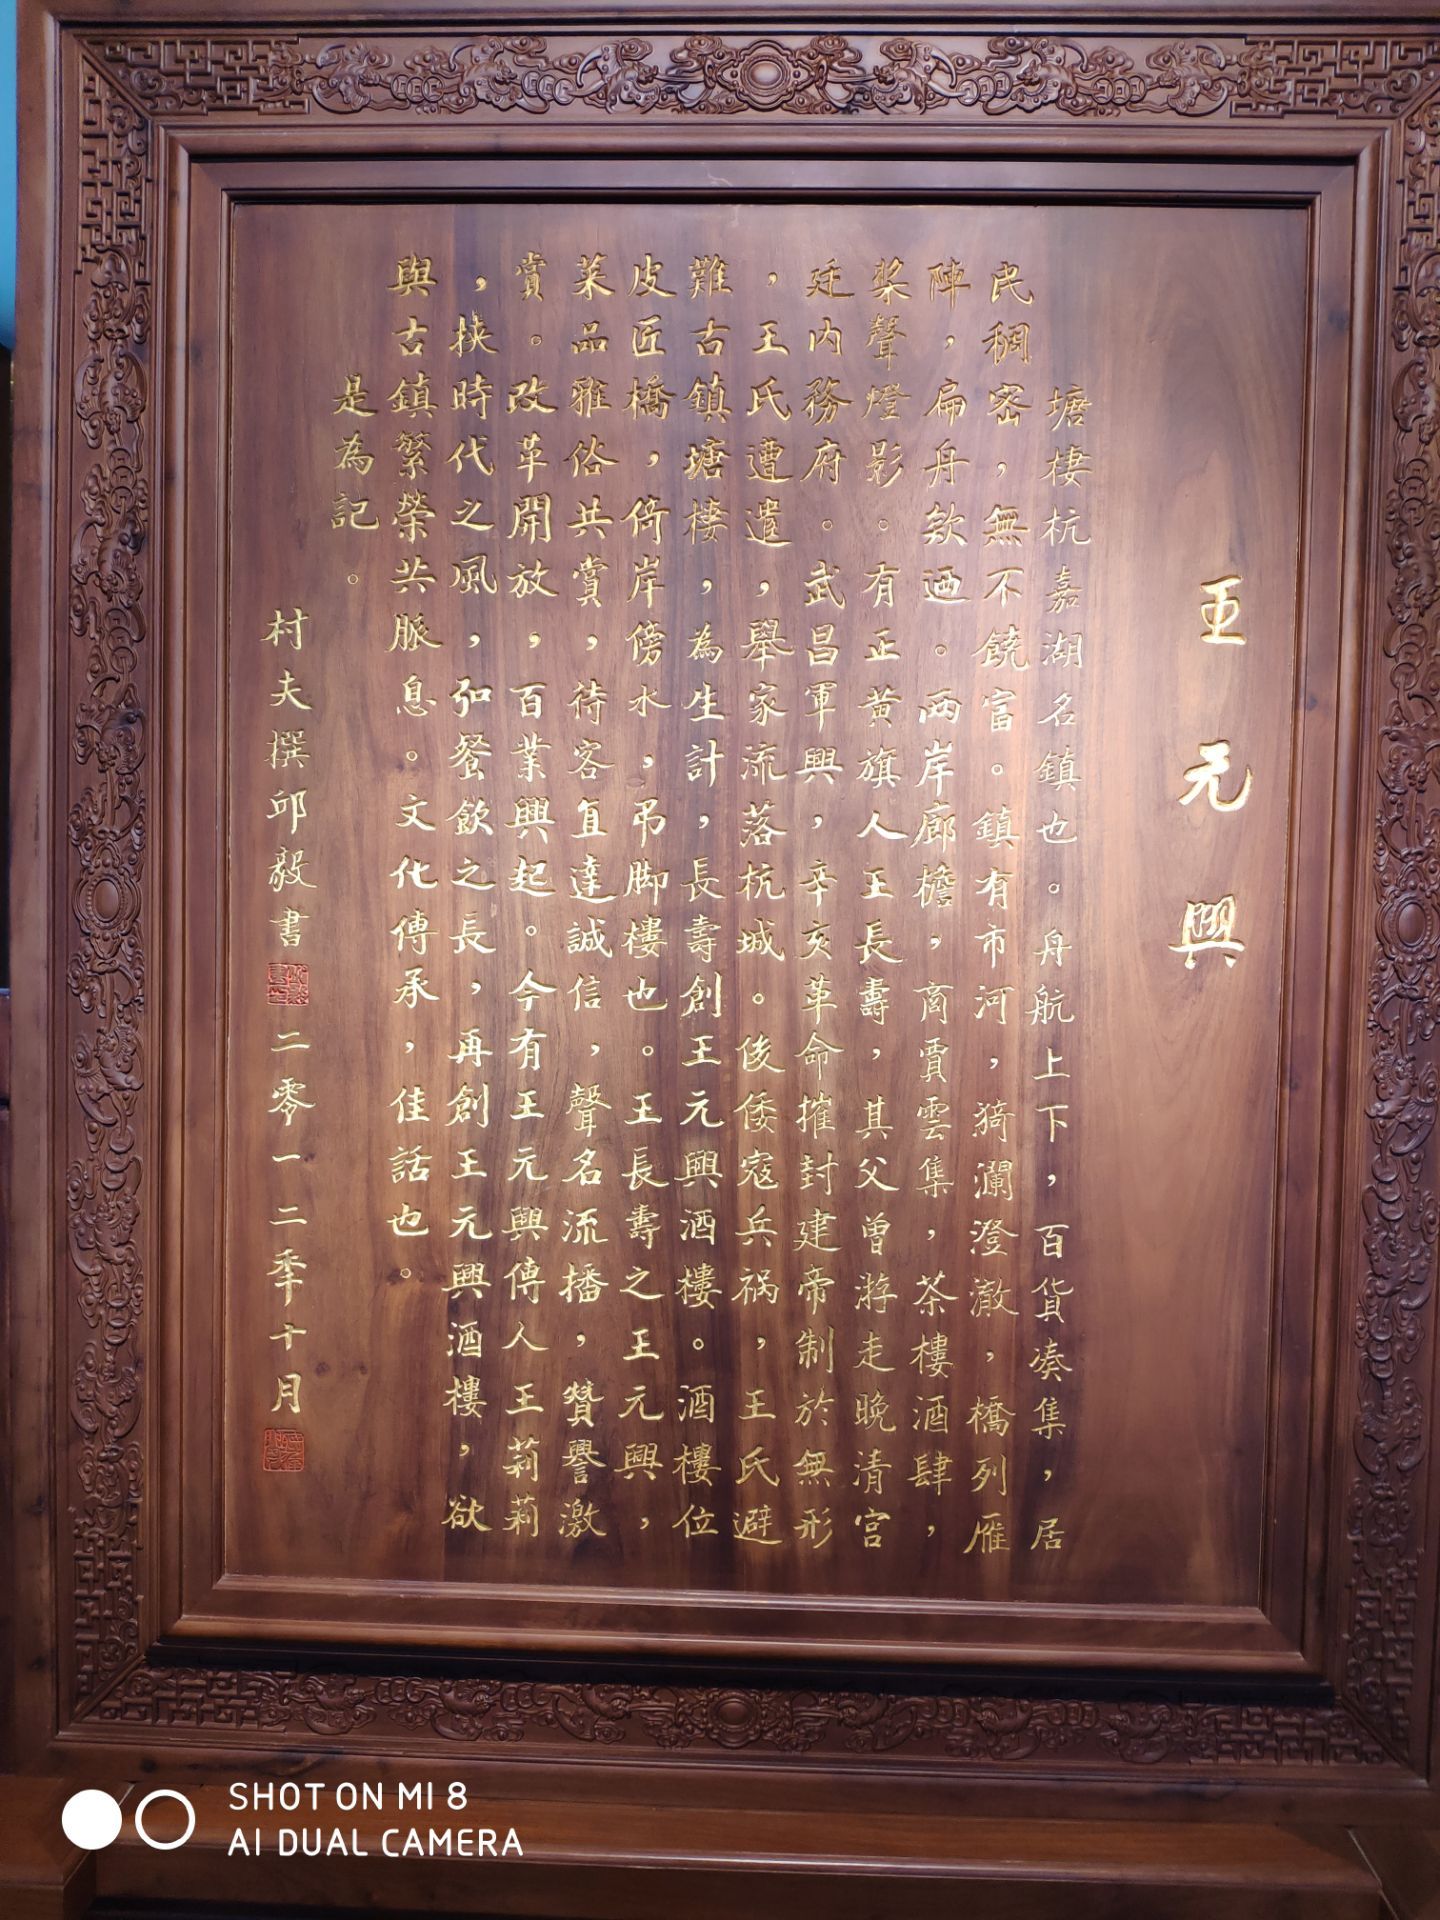 王元興
塘棲杭嘉湖名鎮也。舟航上下，百貨凑集，居
民稠密，無不饒富。鎮有市河，漪瀾澄澈，橋列雁
陣，扁舟欸迺。两岸廊檐，商賈雲集，茶樓酒肆，
桨聲燈影。有正黄旗人王長壽，其父曾游走晚清宫
廷内務府。武昌軍興，辛亥革命摧封建帝制於無形
，王氏遭遣，舉家流落杭城。後倭寇兵祸，王氏避
難古鎮塘棲，為生計，長壽創王元興酒樓。酒樓位
皮匠橋，倚岸傍水，吊脚樓也。王長壽之王元興，
菜品雅俗共賞，待客直達誠信，聲名流播，贊譽激
賞。改革開放，百業興起。今有王元興傳人王莉莉
，挟時代之風，弘餐飲之長，再創王元興酒樓，欲
與古鎮繁榮共脈息。文化傳承，佳話也。
是為記。
村夫撰邱毅書 二零一二季十月
SHOT ON MI 8
AI DUAL CAMERA